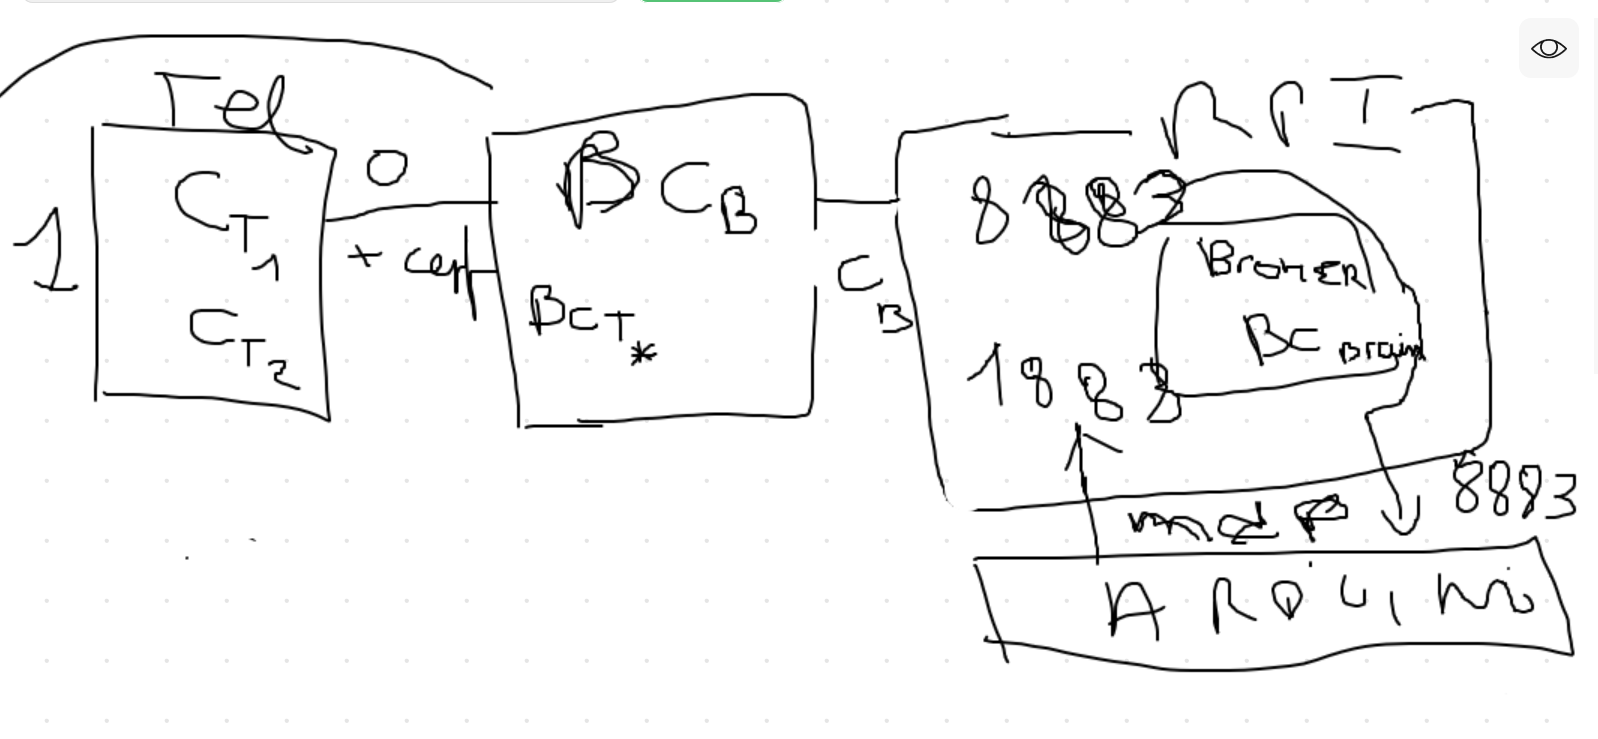 Tel
1
C T1
C T2
O
+ cert
B C B
BCT *
C B
RPI
8883
BroKER
BC Brain
1883
8883
ARDUINO